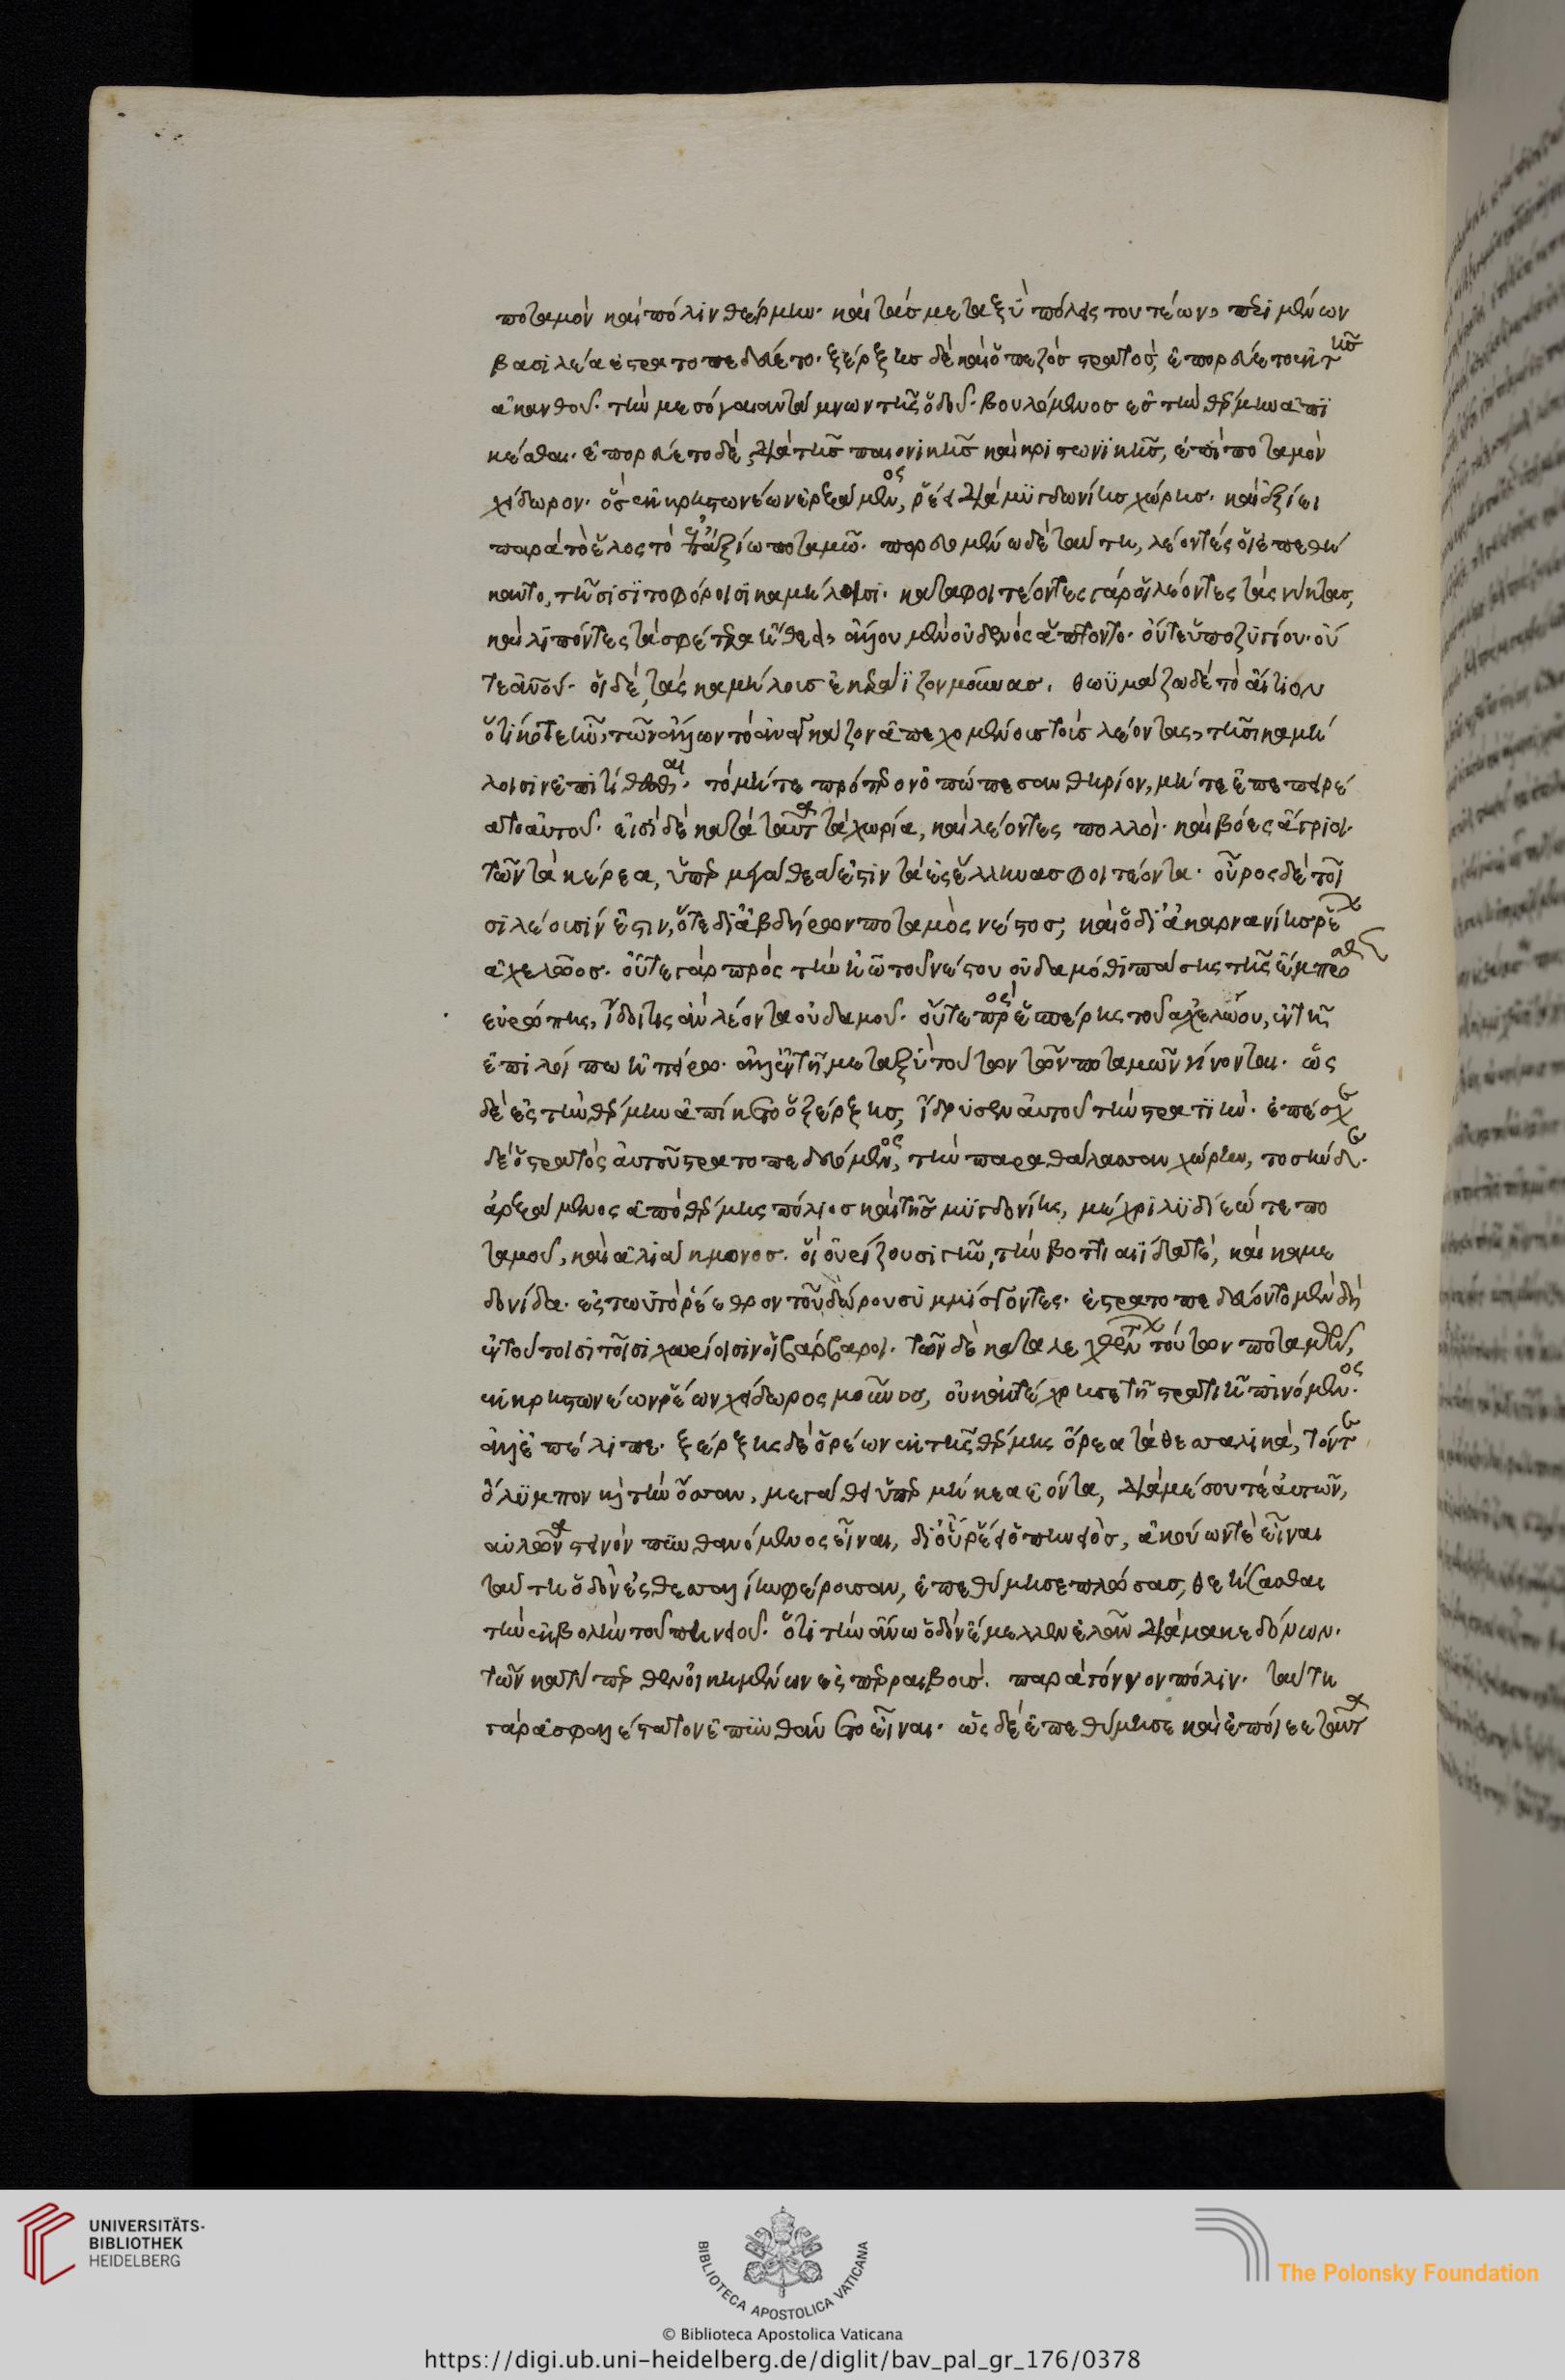 ποταμὸν καὶ πόλιν θέρμην· καὶ τὰς μεταξὺ πόλις τουτέων, περιμένων
βασιλέα ἐστρατοπεδεύετο· ξέρξης δὲ καὶ ὁ πεζὸς στρατὸς, ἐπορεύετο ἐκ τῆς
ἀκάνθου· τὴν μεσόγαιαν τάμνων τῆς ὁδοῦ· βουλόμενος ἐς τὴν θέρμην ἀπϊ
κέσθαι· ἐπορεύετο δὲ, διὰ τῆς παιονικῆς καὶ κρηστωνϊκῆς, ἐπὶ ποταμὸν
χείδωρον· ὃς ἐκ κρηστωνέων ἀρξάμενος, ῥέει διὰ μυγδωνίης χώρης· καὶ ἐξίει
παρὰ τὸ ἕλος τὸ ἐπ' ἀξίω ποταμῶ· πορευομένω δὲ ταύτη, λέοντές οἱ ἐπεθή
καντο, τῆσι σϊτοφόροισι καμήλοισι· καταφοιτέοντες γὰρ οἱ λέοντες τὰς νύκτας,
καὶ λιπόντες τὰ σφέτερα ἤθεα, ἄλλου μὲν οὐδενὸς ἅπτοντο· οὔτε ὑποζυγίου· οὔ
τε ἀνθρώπου· οἱ δὲ, τὰς καμήλους ἐκεράϊζον μούνας· θωϋμάζω δὲ τὸ αἴτιον
ὅ τι κότε ἦν, τῶν ἄλλων τὸ ἀναγκάζον ἀπεχομένους τοὺς λέοντας, τῆσι καμή
λοισιν ἐπιτίθεσθαι· τὸ μήτε πρότερον ὀπώπεσαν θηρίον, μήτε ἐπεπειρέ
ατο αὐτοῦ· εἰσὶ δὲ κατὰ ταῦτα τὰ χωρία, καὶ λέοντες πολλοὶ· καὶ βόες ἄγριοι·
τῶν τὰ κέρεα, ὑπερμεγάθεά ἐστιν τὰ ἐς ἕλληνας φοιτέοντα· οὖρος δὲ τοῖ
σι λέουσίν ἐστιν, ὅ τε δι' ἀβδήρων ποταμὸς νέστος, καὶ ὁ δι' ἀκαρνανίης ῥέων
ἀχελῶος· οὔτε γὰρ πρὸς τὴν ἠῶ τοῦ νέστου οὐδαμόθι πάσης τῆς ἔμπροσθεν
εὐρώπης, ἴδοι τις ἂν λέοντα οὐδαμοῦ· οὔτε πρὸς ἑσπέρης τοῦ ἀχελώου, ἐν τῆ
ἐπιλοίπω ἠπείρω· ἀλλ' ἐν τῆ μεταξὺ τούτων τῶν ποταμῶν γίνονται· ὡς
δὲ ἐς τὴν θέρμην ἀπίκετο ὁ ξέρξης, ἵδρυσεν αὐτοῦ τὴν στρατϊήν· ἐπέσχε
δὲ ὁ στρατὸς αὐτοῦ στρατοπεδευόμενος, τὴν παρὰ θάλασσαν χώρην, τοσήνδε·
ἀρξάμενος ἀπὸ θέρμης πόλιος καὶ τῆς μυγδονίης, μέχρι λυδίεώ τε πο
ταμοῦ, καὶ ἁλιάκμονος· οἳ οὐρίζουσι γῆν, τὴν βοττιαιΐδα τε, καὶ μακε
δονίδα· ἐς τωὐτὸ ῥέεθρον τὸ ὕδωρ συμμίσγοντες· ἐστρατοπεδεύοντο μὲν δὴ
ἐν τούτοισι τοῖσι χωρίοισιν οἱ βάρβαροι· τῶν δὲ καταλεχθέντων τούτων ποταμῶν,
ἐκ κρηστωνέων ῥέων χείδωρος μοῦνος, οὐκ ἀντέχρησε τῆ στρατιῆ πινόμενος·
ἀλλ' ἐπέλιπε· ξέρξης δὲ ὁρέων ἐκ τῆς θέρμης ὄρεα τὰ θεσσαλικὰ, τόν τε
ὄλυμπον καὶ τὴν ὄσσαν, μεγάθει ὑπερμήκεα ἐόντα, διὰ μέσου τε αὐτῶν,
αὐλῶνα στεινὸν πυνθανόμενος εἶναι, δι' οὗ ῥέει ὁ πηνειὸς, ἀκούων τὲ εἶναι
ταύτη ὁδὸν ἐς θεσσαλίην φέρουσαν, ἐπεθύμησε πλώσας, θεήσασθαι
τὴν ἐκβολὴν τοῦ πηνειοῦ· ὅτι τὴν ἄνω ὁδὸν ἔμελλεν ἐλᾶν διὰ μακεδόνων·
τῶν κατύπερθεν οἰκημένων ἐς περραιβοὺς· παρὰ γόννον πόλιν· ταύτη
γὰρ ἀσφαλέστατον ἐπυνθάνετο εἶναι· ὡς δὲ ἐπεθύμησε καὶ ἐποίεε ταῦτα
UNIVERSITÄTS-
BIBLIOTHEK
HEIDELBERG
BIBLIOTECA APOSTOLICA VATICANA
The Polonsky Foundation
© Biblioteca Apostolica Vaticana
https://digi.ub.uni-heidelberg.de/diglit/bav_pal_gr_176/0378